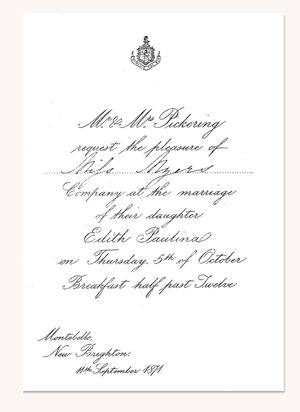 Mr. & Mrs. Pickering
request the pleasure of
Miss Myers
Company at the marriage
of their daughter
Edith Paulina
on Thursday, 5th of October
Breakfast half past Twelve
Montebello,
New Brighton.
11th September 1871